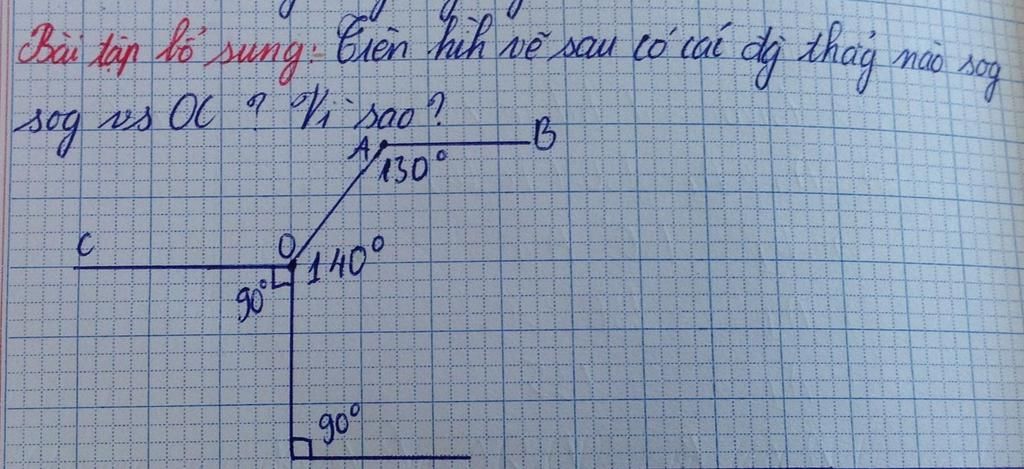 Bài tập bổ sung: Trên hìh vẽ sau có các đg thág nào sog
sog vs OC ? Vì sao?
A B
130°
C O 140°
90°
90°